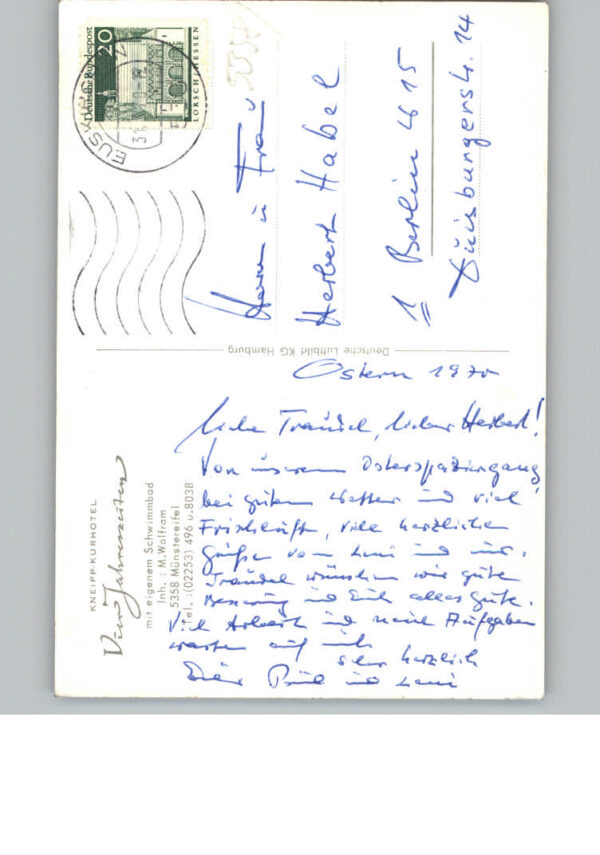 KNEIPP-KURHOTEL
Vier Jahreszeiten
mit eigenem Schwimmbad
Inh.: M. Wolfram
5358 Münstereifel
Tel.: (02253) 496 u. 8038
Ostern 1970
Liebe Traudel, lieber Herbert!
Von unserem Osterspaziergang
bei gutem Wetter und viel
Frischluft, viele herzlichen
Grüße von Leni und mir.
Traudel wünschen wir gute
Besserung und Euch alles Gute.
Viel Arbeit und neue Aufgaben
warten auf mich
Sehr herzlich
Euer und Leni
Deutsche Luftbild KG Hamburg
Deutsche Bundespost
20
LORSCH/HESSEN
EUSKIRC
Herrn u. Frau
Herbert Habel
1 Berlin W 15
Duisburgerstr. 14